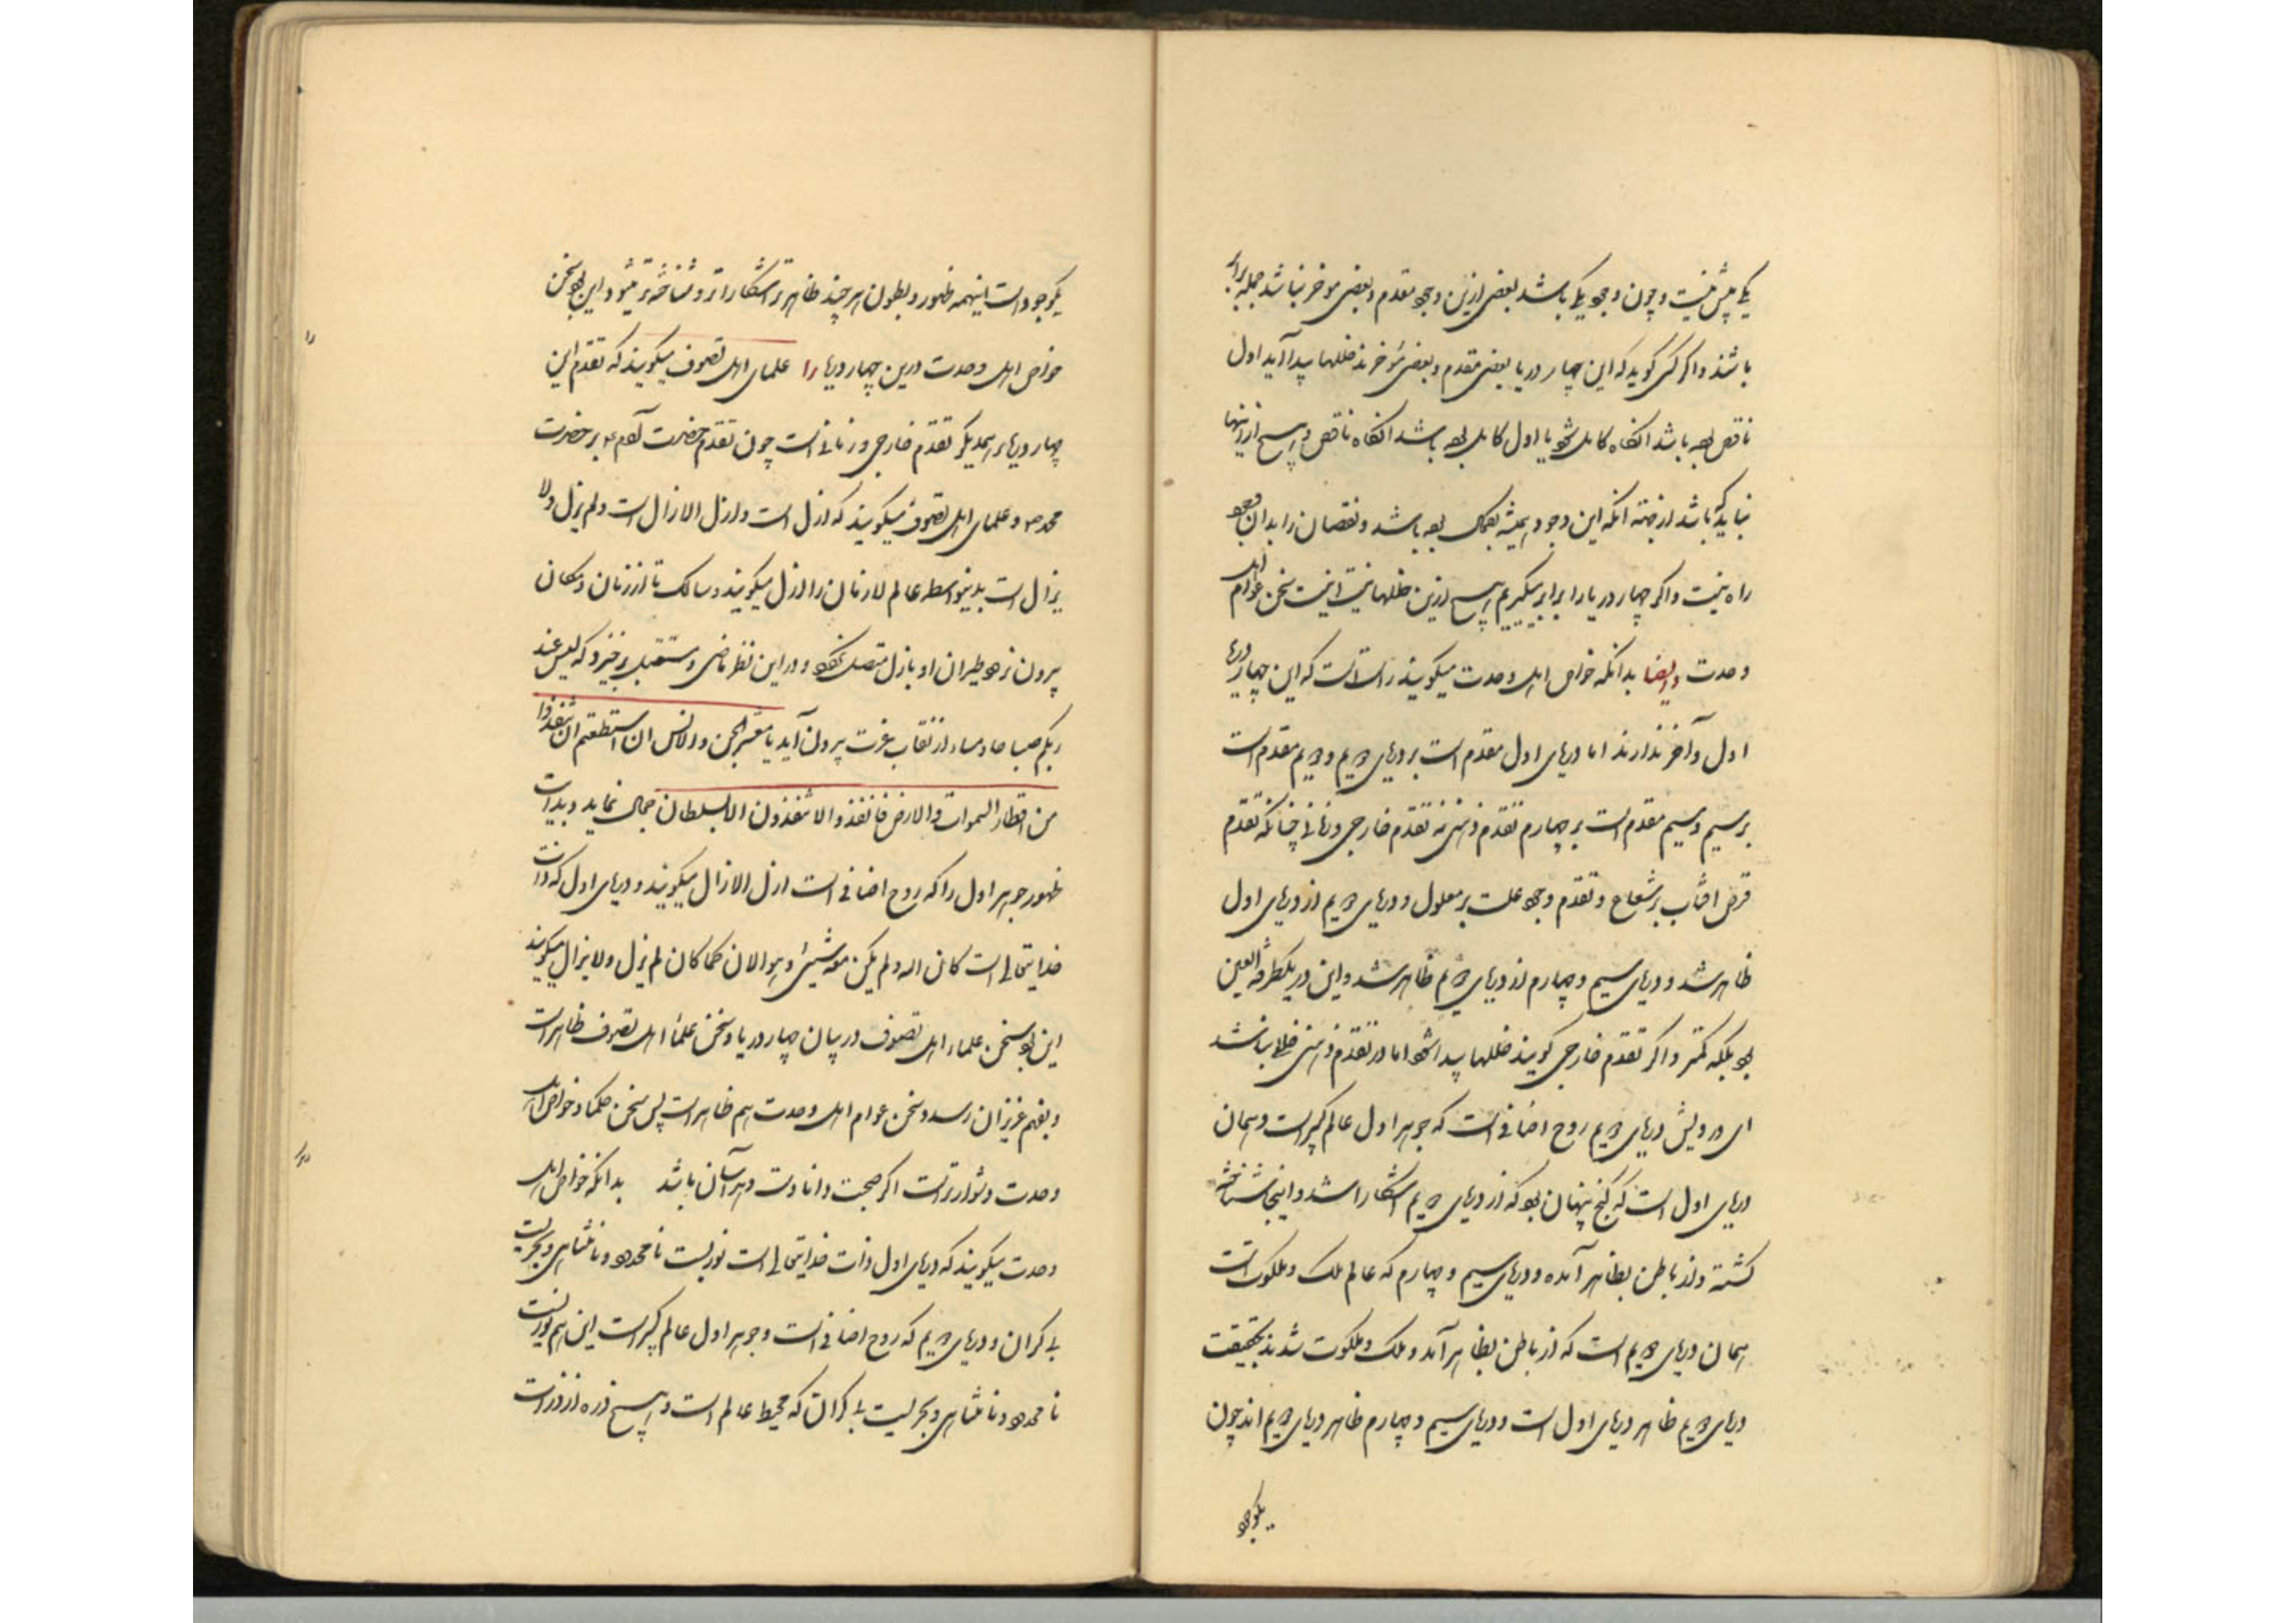 یکی پیش نیست و چون وجود یکی باشد بعضی ازین وجود مقدم و بعضی موخر نباشد جمله برابر
باشند و اگر کسی گوید که این چهار دریا بعضی مقدم و بعضی مؤخرند خللها پیدا آید اول
ناقص بوده باشد آنگاه کامل شود یا اول کامل بوده باشد آنگاه ناقص و هیچ ازینها
نباید که باشد از جهته آنکه این وجود همیشه بکمال بوده باشد و نقصان را بدان وجود
راه نیست و اگر چهار دریا را برابر میگیریم هیچ ازین خللها نیست اینست سخن عوام اهل
وحدت وایضا بدانکه خواص اهل وحدت میگویند راست است که این چهار دریا
اول و آخر ندارند اما دریای اول مقدم است بر دریای دویم و دویم مقدم است
بر سیم و سیم مقدم است بر چهارم تقدم ذهنی نه تقدم خارجی و زمانی چنانکه تقدم
قرص افتاب بر شعاع و تقدم وجود علت بر معلول و دریای دویم از دریای اول
ظاهر شد و دریای سیم و چهارم از دریای دویم ظاهر شد و این در یکطرفة العین
بود بلکه کمتر و اگر تقدم خارجی گویند خللها پیدا شود اما در تقدم ذهنی خللی نباشد
ای درویش دریای دویم روح اضافی است که جوهر اول عالم کبیر است و همان
دریای اول است که گنج پنهان بود که از دریای دویم اشکارا شد و اینجا شناخته
گشته و از باطن بظاهر آمده و دریای سیم و چهارم که عالم ملک و ملکوت است
همان دریای دویم است که از باطن بظاهر آمد و ملک و ملکوت شدند بحقیقت
دریای دویم ظاهر دریای اول است و دریای سیم و چهارم ظاهر دریای دویم اند چون
یکوجود
یکوجود است اینهمه ظهور و بطون هر چند ظاهرتر اشکاراتر و شناخته‌تر میشود این بود سخن
خواص اهل وحدت درین چهار دریا را علمای اهل تصوف میگویند که تقدم این
چهار دریا بر همدیگر تقدم خارجی و زمانی است چون تقدم حضرت آدم ع بر حضرت
محمد ص و علمای اهل تصوف میگویند که ازل است و ازل الازال است و لم یزل و لا
یزال است بدینواسطه عالم لازمان را ازل میگویند و سالک تا از زمان و مکان
بیرون نرود طیران او بازل متصل نگردد و در این نظر ماضی و مستقبل برخیزد که لیس عند
ربکم صباحا و مساء از نقاب عزت بیرون آید یا معشر الجن والانس ان استطعتم ان تنفذوا
من اقطار السموات والارض فانفذوا لا تنفذون الا بسلطان جمال نماید و بدایت
ظهور جوهر اول را که روح اضافی است ازل الازال میگویند و دریای اول که ذات
خدایتعالی است کان الله ولم یکن معه شیئ و هو الان کما کان لم یزل ولا یزال میگویند
این بود سخن علماء اهل تصوف در بیان چهار دریا و سخن علماء اهل تصوف ظاهر است
و بفهم عزیزان رسد و سخن عوام اهل وحدت هم ظاهر است پس سخن حکما و خواص اهل
وحدت دشوارتر است اگر صحبت دانا دست دهد آسان باشد بدانکه خواص اهل
وحدت میگویند که دریای اول ذات خدایتعالی است نوریست نامحدود و نامتناهی و بحریست
بی کران و دریای دویم که روح اضافی است و جوهر اول عالم کبیر است این هم نوریست
نامحدود و نامتناهی و بحریست بی کران که محیط عالم است و هیچ ذره از ذرات